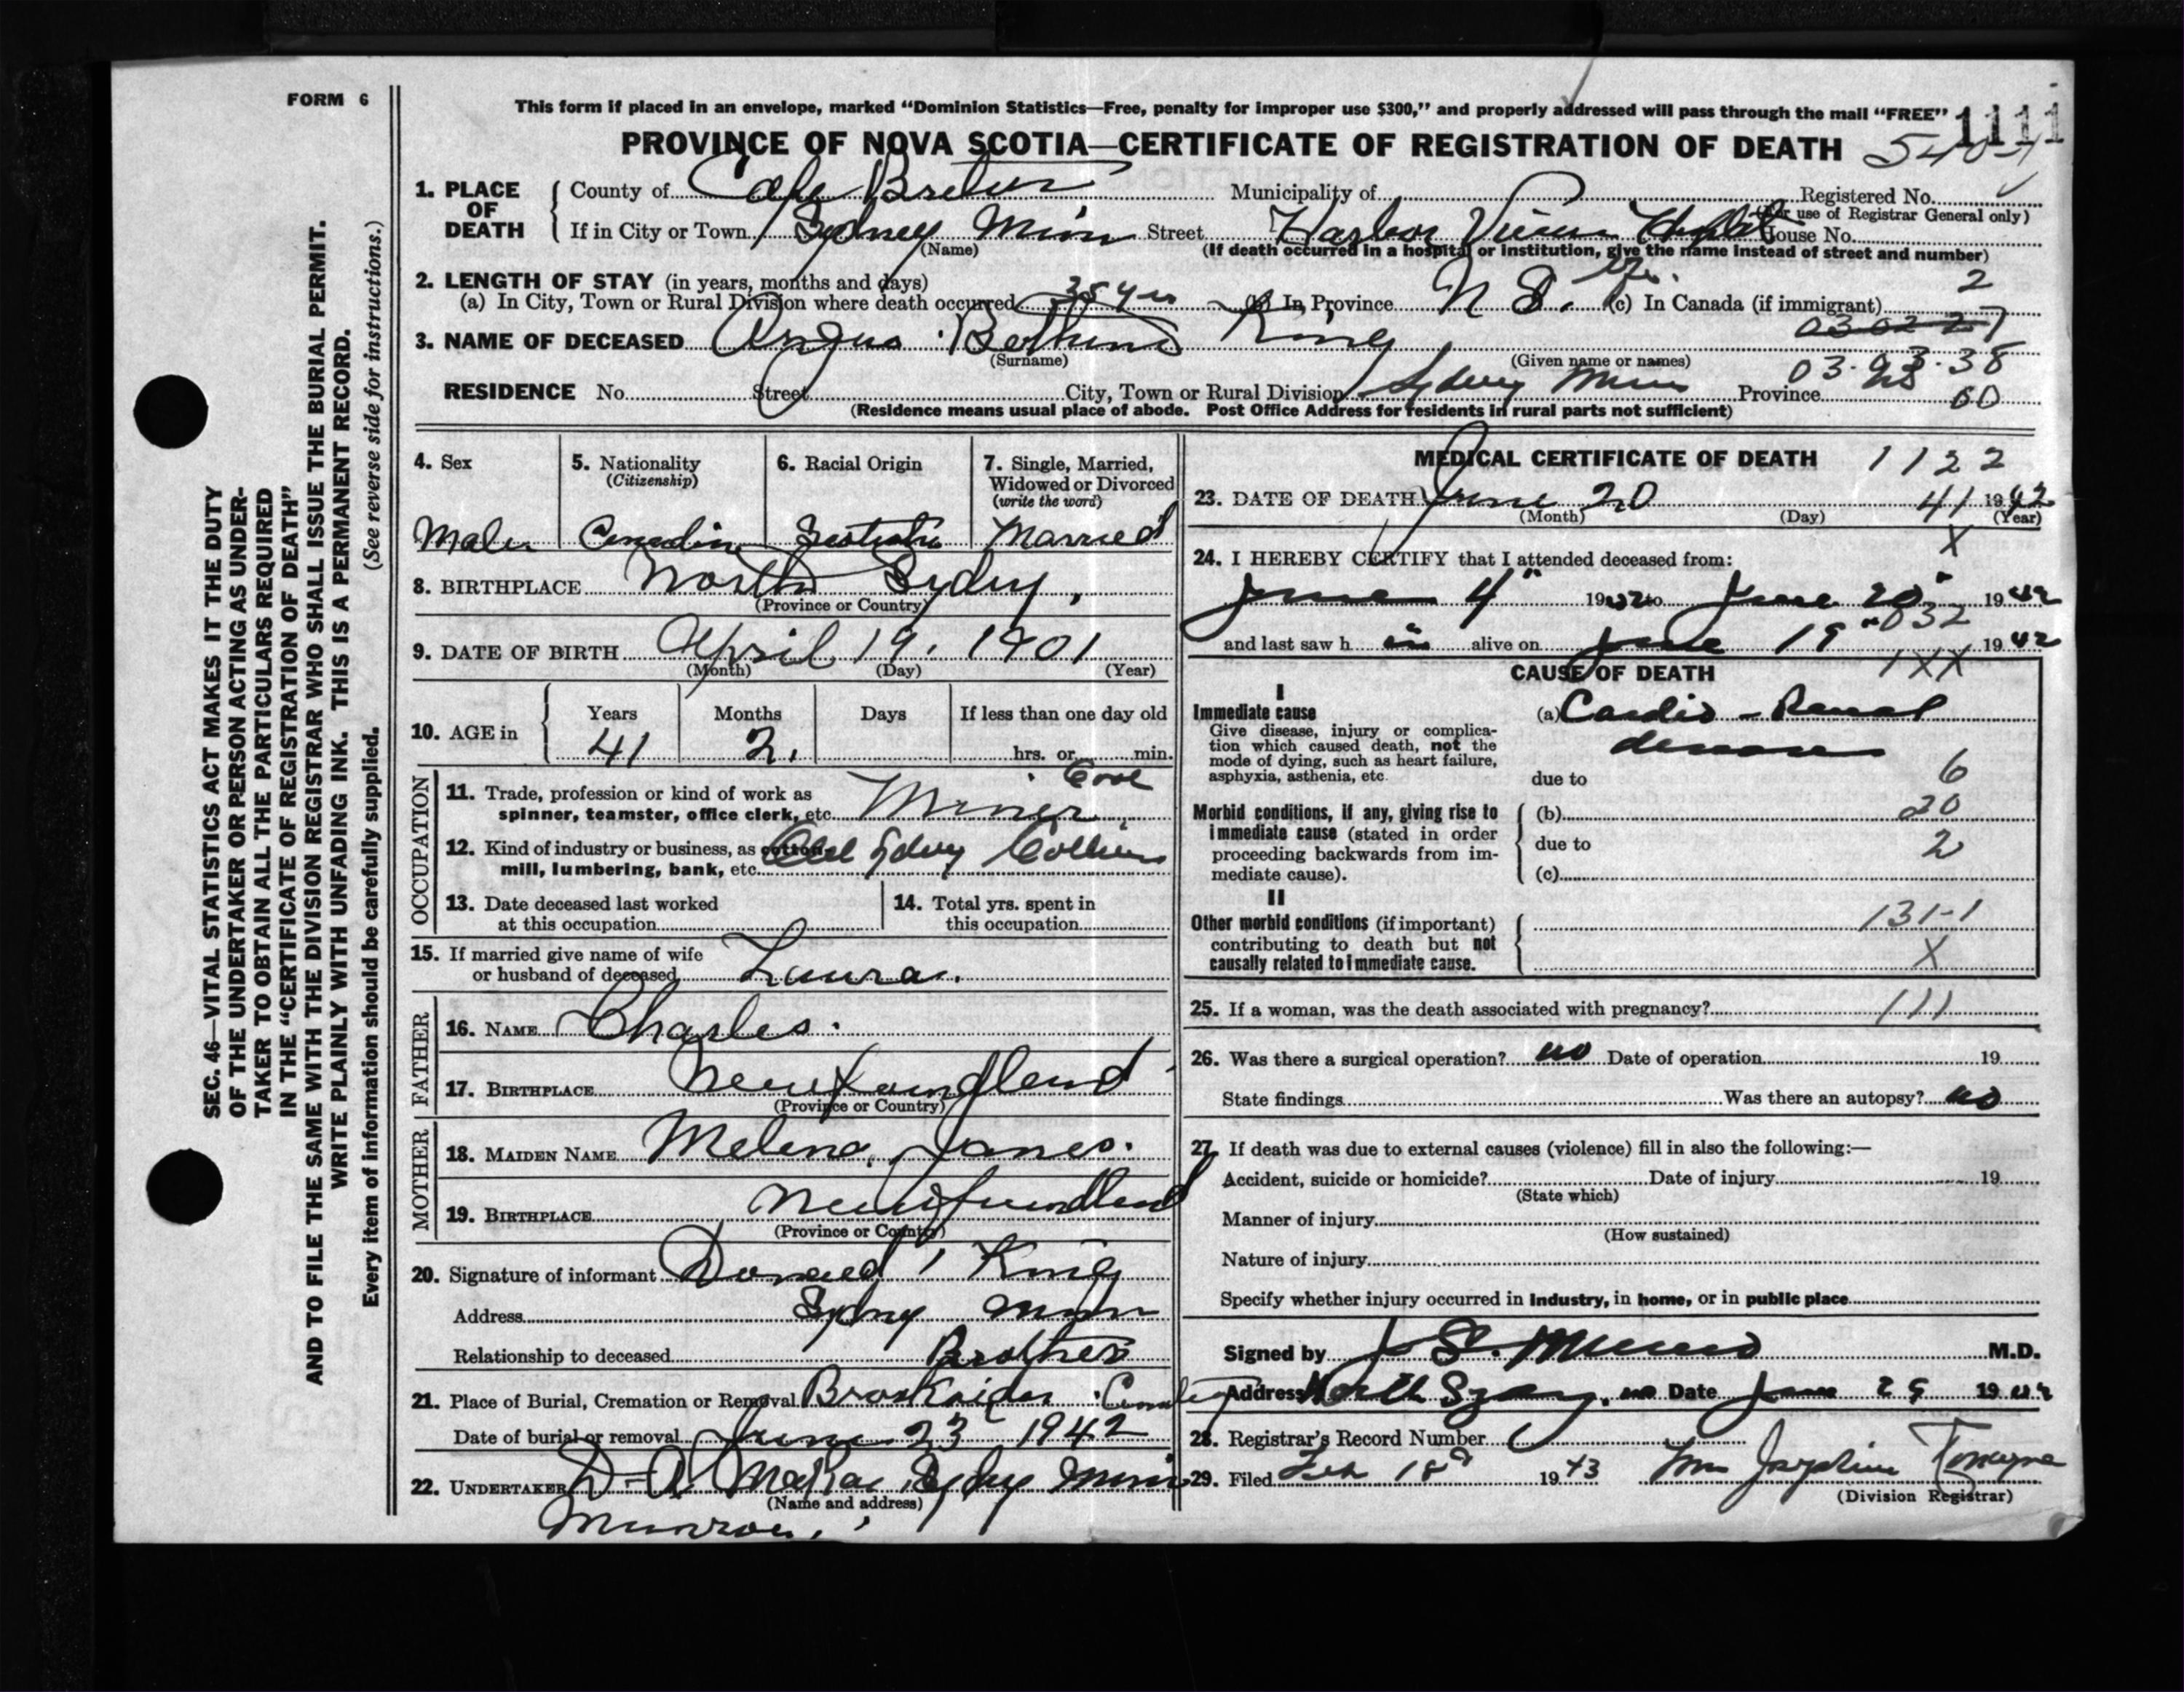 FORM 6
This form if placed in an envelope, marked "Dominion Statistics—Free, penalty for improper use $300," and properly addressed will pass through the mail "FREE" 1111
PROVINCE OF NOVA SCOTIA—CERTIFICATE OF REGISTRATION OF DEATH
1. PLACE OF DEATH County of Cape Breton Municipality of Registered No.
(For use of Registrar General only)
If in City or Town Sydney Mines Street Harbor View Hospital House No.
(Name) (If death occurred in a hospital or institution, give the name instead of street and number)
2. LENGTH OF STAY (in years, months and days) life. 2
(a) In City, Town or Rural Division where death occurred 35 yrs (b) In Province N S. (c) In Canada (if immigrant)
3. NAME OF DECEASED Angus King
(Surname) (Given name or names) 03.93.38
RESIDENCE No. Street City, Town or Rural Division Sydney Mines Province 60
(Residence means usual place of abode. Post Office Address for residents in rural parts not sufficient)
SEC. 46—VITAL STATISTICS ACT MAKES IT THE DUTY
OF THE UNDERTAKER OR PERSON ACTING AS UNDER-
TAKER TO OBTAIN ALL THE PARTICULARS REQUIRED
IN THE "CERTIFICATE OF REGISTRATION OF DEATH"
AND TO FILE THE SAME WITH THE DIVISION REGISTRAR WHO SHALL ISSUE THE BURIAL PERMIT.
WRITE PLAINLY WITH UNFADING INK. THIS IS A PERMANENT RECORD.
Every item of information should be carefully supplied. (See reverse side for instructions.)
4. Sex 5. Nationality 6. Racial Origin 7. Single, Married,
(Citizenship) Widowed or Divorced
(write the word)
Male Canadian Married
8. BIRTHPLACE North Sydney,
(Province or Country)
9. DATE OF BIRTH April 19. 1901
(Month) (Day) (Year)
10. AGE in Years Months Days If less than one day old
41 2. hrs. or min.
OCCUPATION
11. Trade, profession or kind of work as Coal
spinner, teamster, office clerk, etc. Miner
12. Kind of industry or business, as cotton- Sydney Colliery
mill, lumbering, bank, etc.
13. Date deceased last worked 14. Total yrs. spent in
at this occupation this occupation
15. If married give name of wife
or husband of deceased Laura.
FATHER
16. NAME Charles.
17. BIRTHPLACE Newfoundland
(Province or Country)
MOTHER
18. MAIDEN NAME Melena Janes.
19. BIRTHPLACE Newfoundland
(Province or Country)
20. Signature of informant Donald King
Address Sydney Mines
Relationship to deceased Brother
21. Place of Burial, Cremation or Removal Cemetery
Date of burial or removal June 23 1942
22. UNDERTAKER D-A MacRae Sydney Mines
(Name and address)
Munroe.
MEDICAL CERTIFICATE OF DEATH 1122
23. DATE OF DEATH June 20 41 1942
(Month) (Day) (Year)
X
24. I HEREBY CERTIFY that I attended deceased from:
June 4" 1942 to June 20" 1942
032
and last saw h im alive on June 19" 1942
1XX
CAUSE OF DEATH
I
Immediate cause (a) Cardio - Renal
Give disease, injury or complica- disease
tion which caused death, not the
mode of dying, such as heart failure,
asphyxia, asthenia, etc. due to 6
Morbid conditions, if any, giving rise to (b) 20
immediate cause (stated in order
proceeding backwards from im- due to 2
mediate cause). (c)
II
Other morbid conditions (if important) 131-1
contributing to death but not
causally related to immediate cause. X
25. If a woman, was the death associated with pregnancy? 111
26. Was there a surgical operation? no Date of operation 19
State findings Was there an autopsy? no
27. If death was due to external causes (violence) fill in also the following:—
Accident, suicide or homicide? Date of injury 19
(State which)
Manner of injury
(How sustained)
Nature of injury
Specify whether injury occurred in industry, in home, or in public place
Signed by J S. Munro M.D.
Address North Sydney. Date June 29 1942
28. Registrar's Record Number
29. Filed Feb 18th 1943 Mrs Josephine
(Division Registrar)